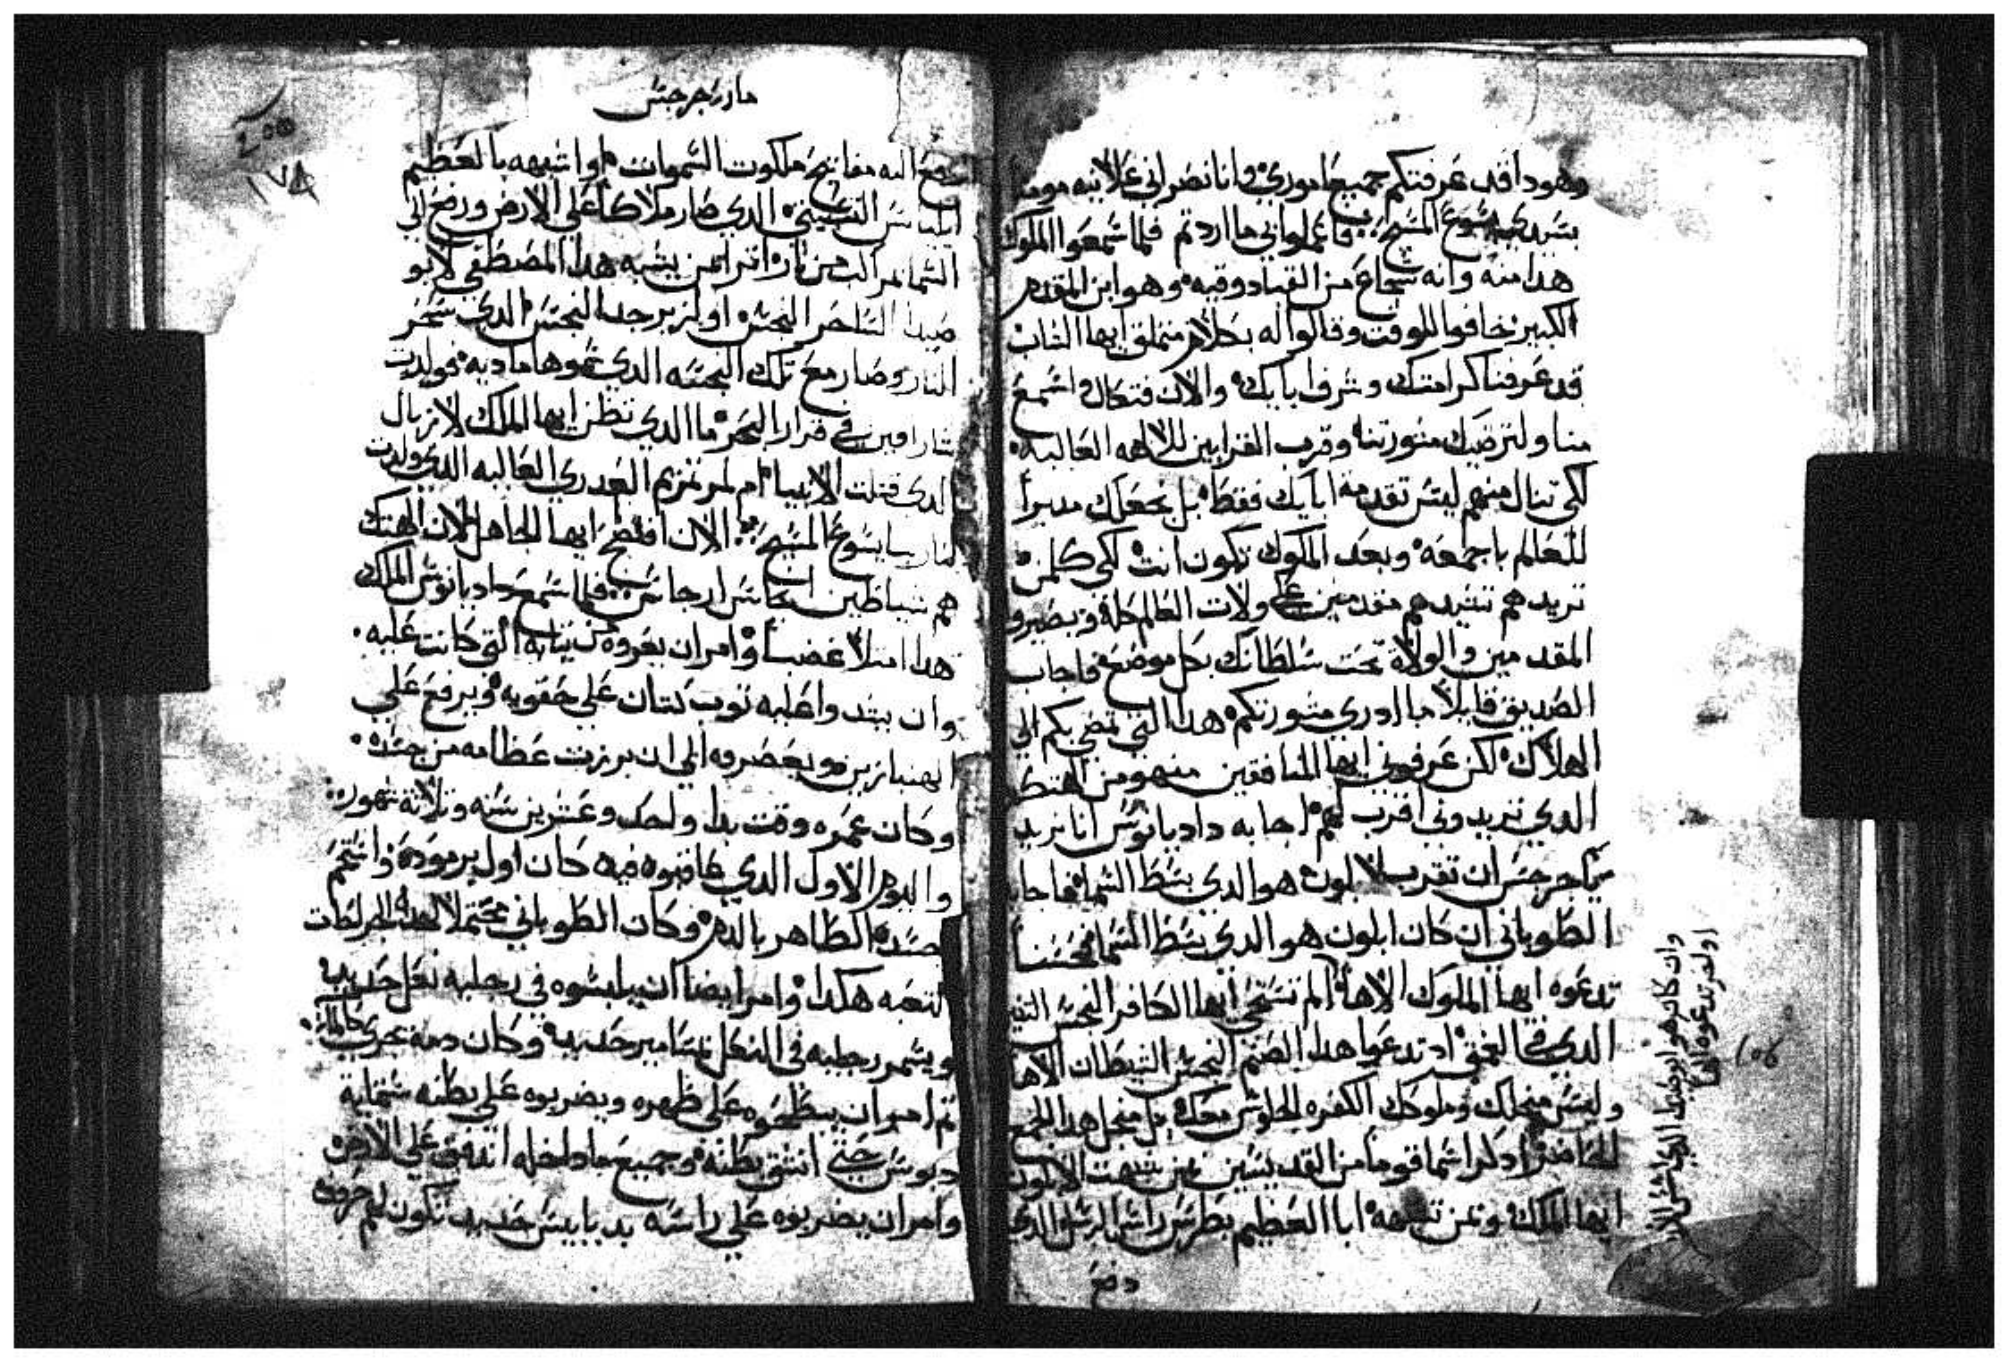 وهودا قد عرفتكم جميع اموري وانا نصراني علانيه مومن
بسيدي يسوع المسيح فاعملوا بي ما اردتم فلما سمعوا الملوك
هدا منه وانه شجاع من القبادوقيه وهو ابن المقدم
الكبير خافوا للوقت وقالوا له بكلام متملق ايها الشاب
قد عرفنا كرامتك وشرف ابايك والان فتعال واسمع
منا ولترضيك مشورتنا وقرب القرابين للالهه العاليه
لكي تنال منهم ليس تقدمة ابايك فقط بل نجعلك مدبرا
للعالم باجمعه وبعد الملوك تكون انت لكي كلمن
تريدهم تشيدهم مقدمين علي ولات العالم كله ويصيرو
المقدمين والولاة تحت سلطانك بكل موضع فاجاب
الصديق قايلا ما ادري مشورتكم هدا التي تمضي بكم الي
الهلاك لكن عرفوني ايها المنافقين منهو من الهتكم
الدي تريدوني اقرب لهم اجابه داديانوس انا نريد
يا جرجس ان تقرب لابلون هو الدي بسط السما فاجاب
الطوباني ان كان ابلون هو الدي بسط السما فحسنا
تدعوه ايها الملوك الاها الم تستحي ايها الكافر النجس التنين
الدي في العمق اد تدعوا هدا الصنم النجس الشيطان الاها
وليس منجلك وملوكك الكفره الجلوس معك بل منجل هدا الجمع
الحاضر ادكر اسما قوما من القديسين بمن شبهت الابلون
ايها الملك وبمن تشبهه ابا العظيم بطرس راس الرسل الدي
دفع
وان كان هو الدي بسط
اولم تدعوه الها
١٥٤
مار جرجس
١٧٨
دفع اليه مفاتيح ملكوت السموات او اشبهه بالعظيم
الياس التسبيتي الدي صار ملاكا علي الارض ورفع الي
السما بمراكب من نار اترا من يشبه هدا المصطفي لابو
صيدا الساحر النجس او لزبرجدا النجس الدي سحر
النار وصار مع تلك النجسه الدي تموها ماديه فولدت
في قرار البحر ما الدي تظن ايها الملك لازبال
الدي قتلت الانبيا ام لمرتمريم العدري العاليه الدي ولدت
لنا ربنا يسوع المسيح الان افتضح ايها الجاهل لان الهتك
هم شياطين انجاس ارجاس فلما سمع داديانوس الملك
هدا امتلا غضبا وامر ان يعروه من ثيابه التي كانت عليه
وان يشدوا عليه توب كتان علي حقويه ويرفع علي
الهنبازين ويعصروه الي ان برزت عظامه من جسده
وكان عمره وقت بدا واحد وعشرين سنه وتلاتة شهور
واليوم الاول الدي عاقبوه فيه كان اول برموده واستحم
جسده الطاهر بالدم وكان الطوباني محتملا لهده الجراحات
التعبه هكدا وامر ايضا ان يلبسوه في رجليه نعل حديد
ويسمر رجليه في النعل بمسامير حديد وكان دمه يجري كالما
تم امر ان يبطحوه علي ظهره ويضربوه علي بطنه ستماية
دبوس حتي انشق بطنه وجميع ما داخله اندفق علي الارض
وامر ان يضربوه علي راسه بدبابيس حديد تكون لهم حروف